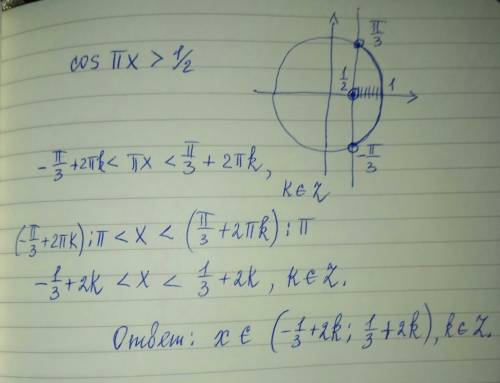 cos πx > 1/2
π/3
1/2
1
-π/3
-π/3 + 2πk < πx < π/3 + 2πk,
k ∈ Z
(-π/3 + 2πk) : π < x < (π/3 + 2πk) : π
-1/3 + 2k < x < 1/3 + 2k, k ∈ Z.
Ответ: x ∈ (-1/3 + 2k; 1/3 + 2k), k ∈ Z.